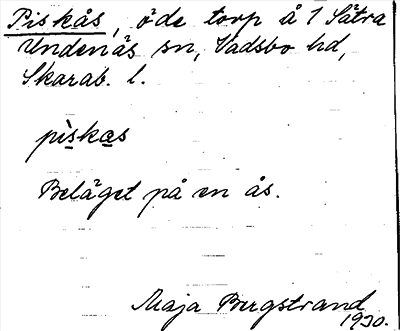 Piskås, öde torp å 1 Sätra
Undenäs sn, Vadsbo hd,
Skarab. l.
pìskas
Beläget på en ås.
Maja Bergstrand
1930.